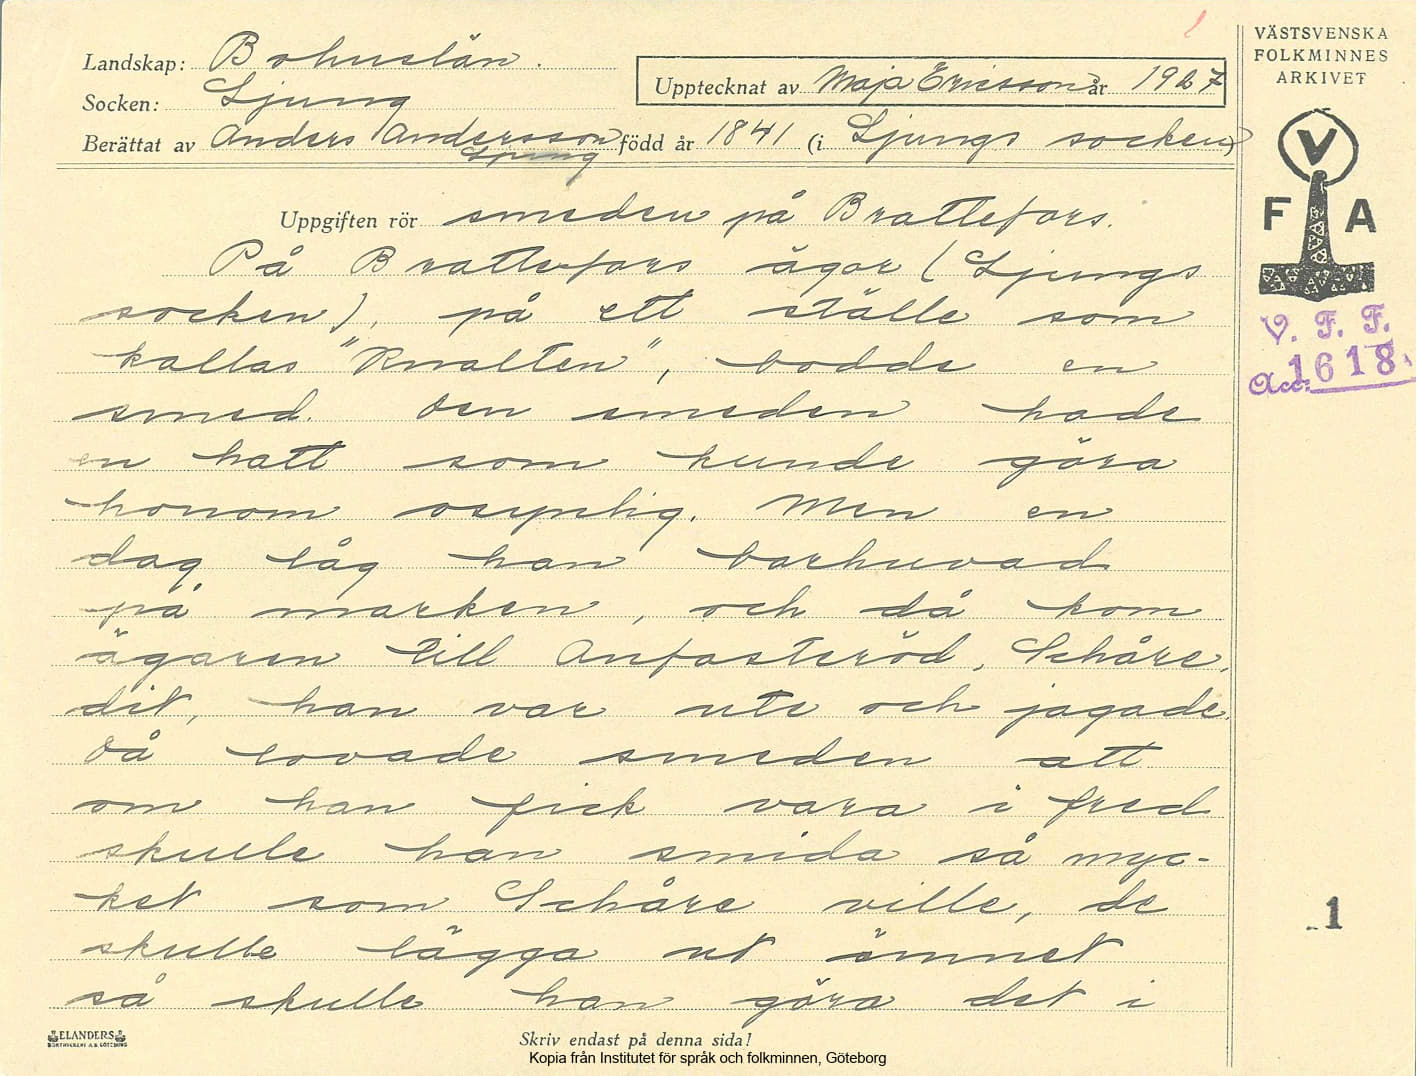 Landskap: Bohuslän.
Socken: Ljung
Upptecknat av Maja Ericsson år 1927
Berättat av Anders Andersson född år 1841 (i Ljungs socken)
Ljung
Uppgiften rör smeden på Brattefors.
På Brattefors ägor (Ljungs
socken), på ett ställe som
kallas "Kvalten", bodde en
smed. Den smeden hade
en hatt som kunde göra
honom osynlig. Men en
dag låg han barhuvad
på marken, och då kom
ägaren till Anfasteröd, Schåre,
dit, han var ute och jagade.
Då lovade smeden att
om han fick vara i fred
skulle han smida så myc-
ket som Schåre ville, de
skulle lägga ut ämnet
så skulle han göra det i
VÄSTSVENSKA
FOLKMINNES
ARKIVET
V
F A
V. F. F.
Acc: 1618
1
ELANDERS
BOKTRYCKERI A.B. GÖTEBORG
Skriv endast på denna sida!
Kopia från Institutet för språk och folkminnen, Göteborg